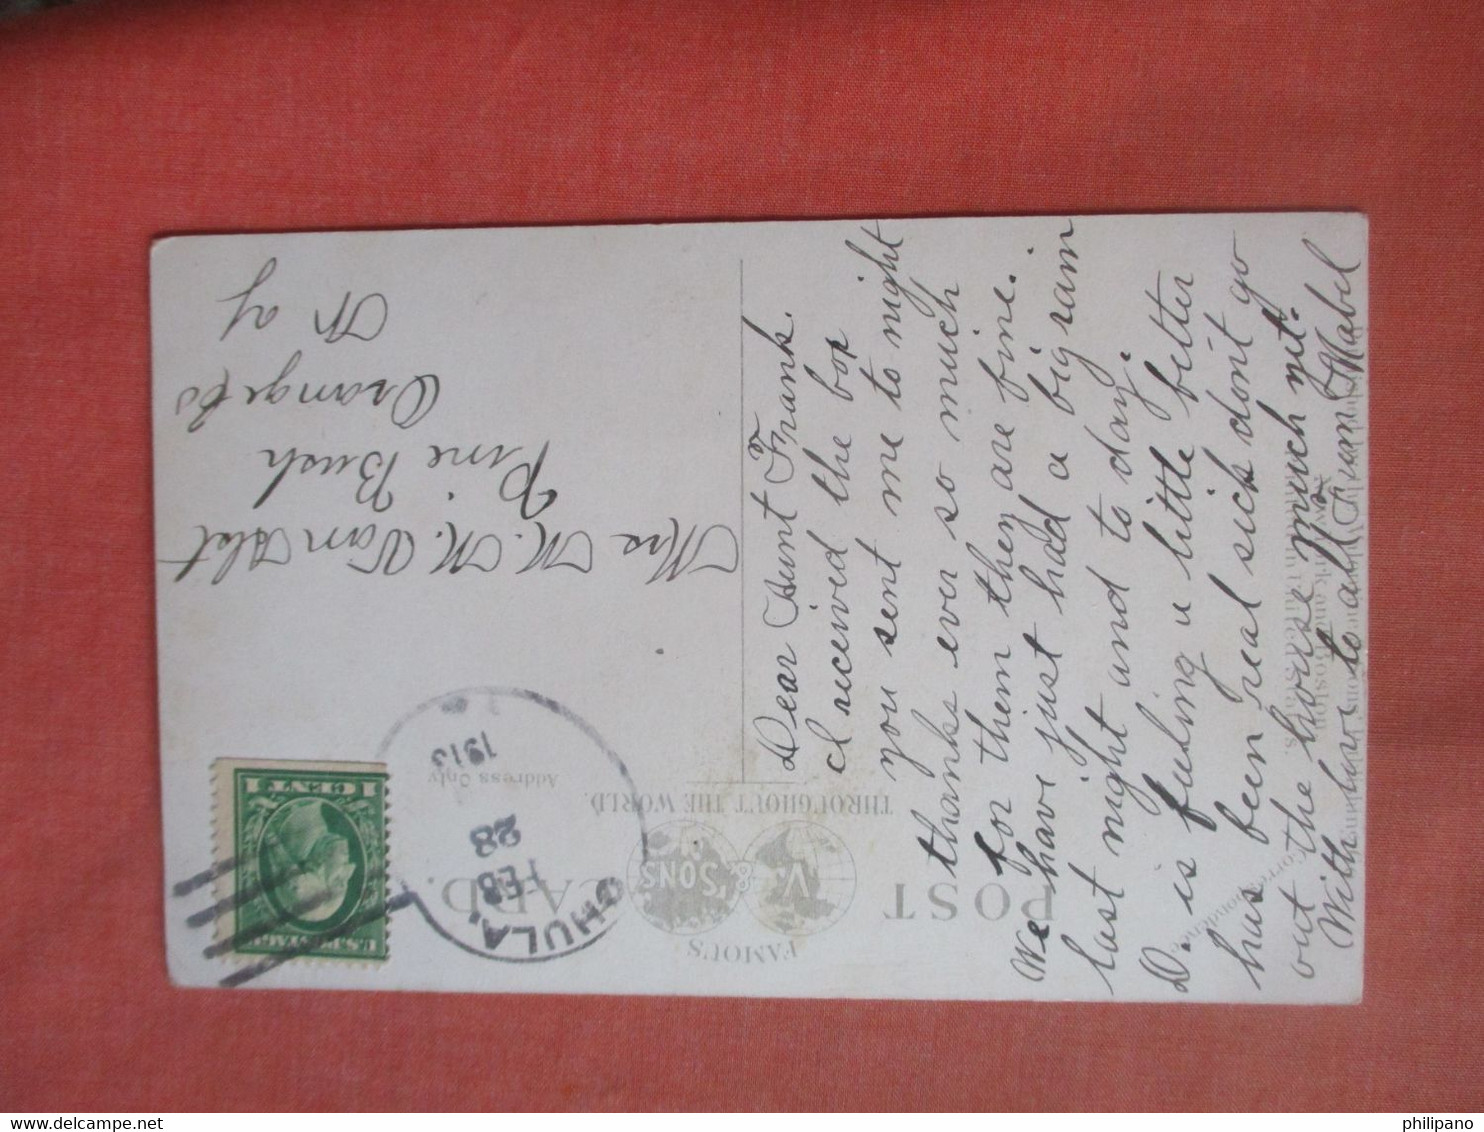 Dear Aunt Frank.
I received the box
you sent me to night
thanks ever so much
for them they are fine.
We have just had a big rain
last night and to day.
D. is fuling a little better
has been real sick don't go
out the house much yit.
With love to all from Mabel
FAMOUS
V. & SONS
THROUGHOUT THE WORLD.
POST CARD.
Address Only
Correspondence
Mrs M. M. Van
Pine Bush
Orange Co
N y
FEB
28
1913
1 CENT 1
U.S. POSTAGE
philipano